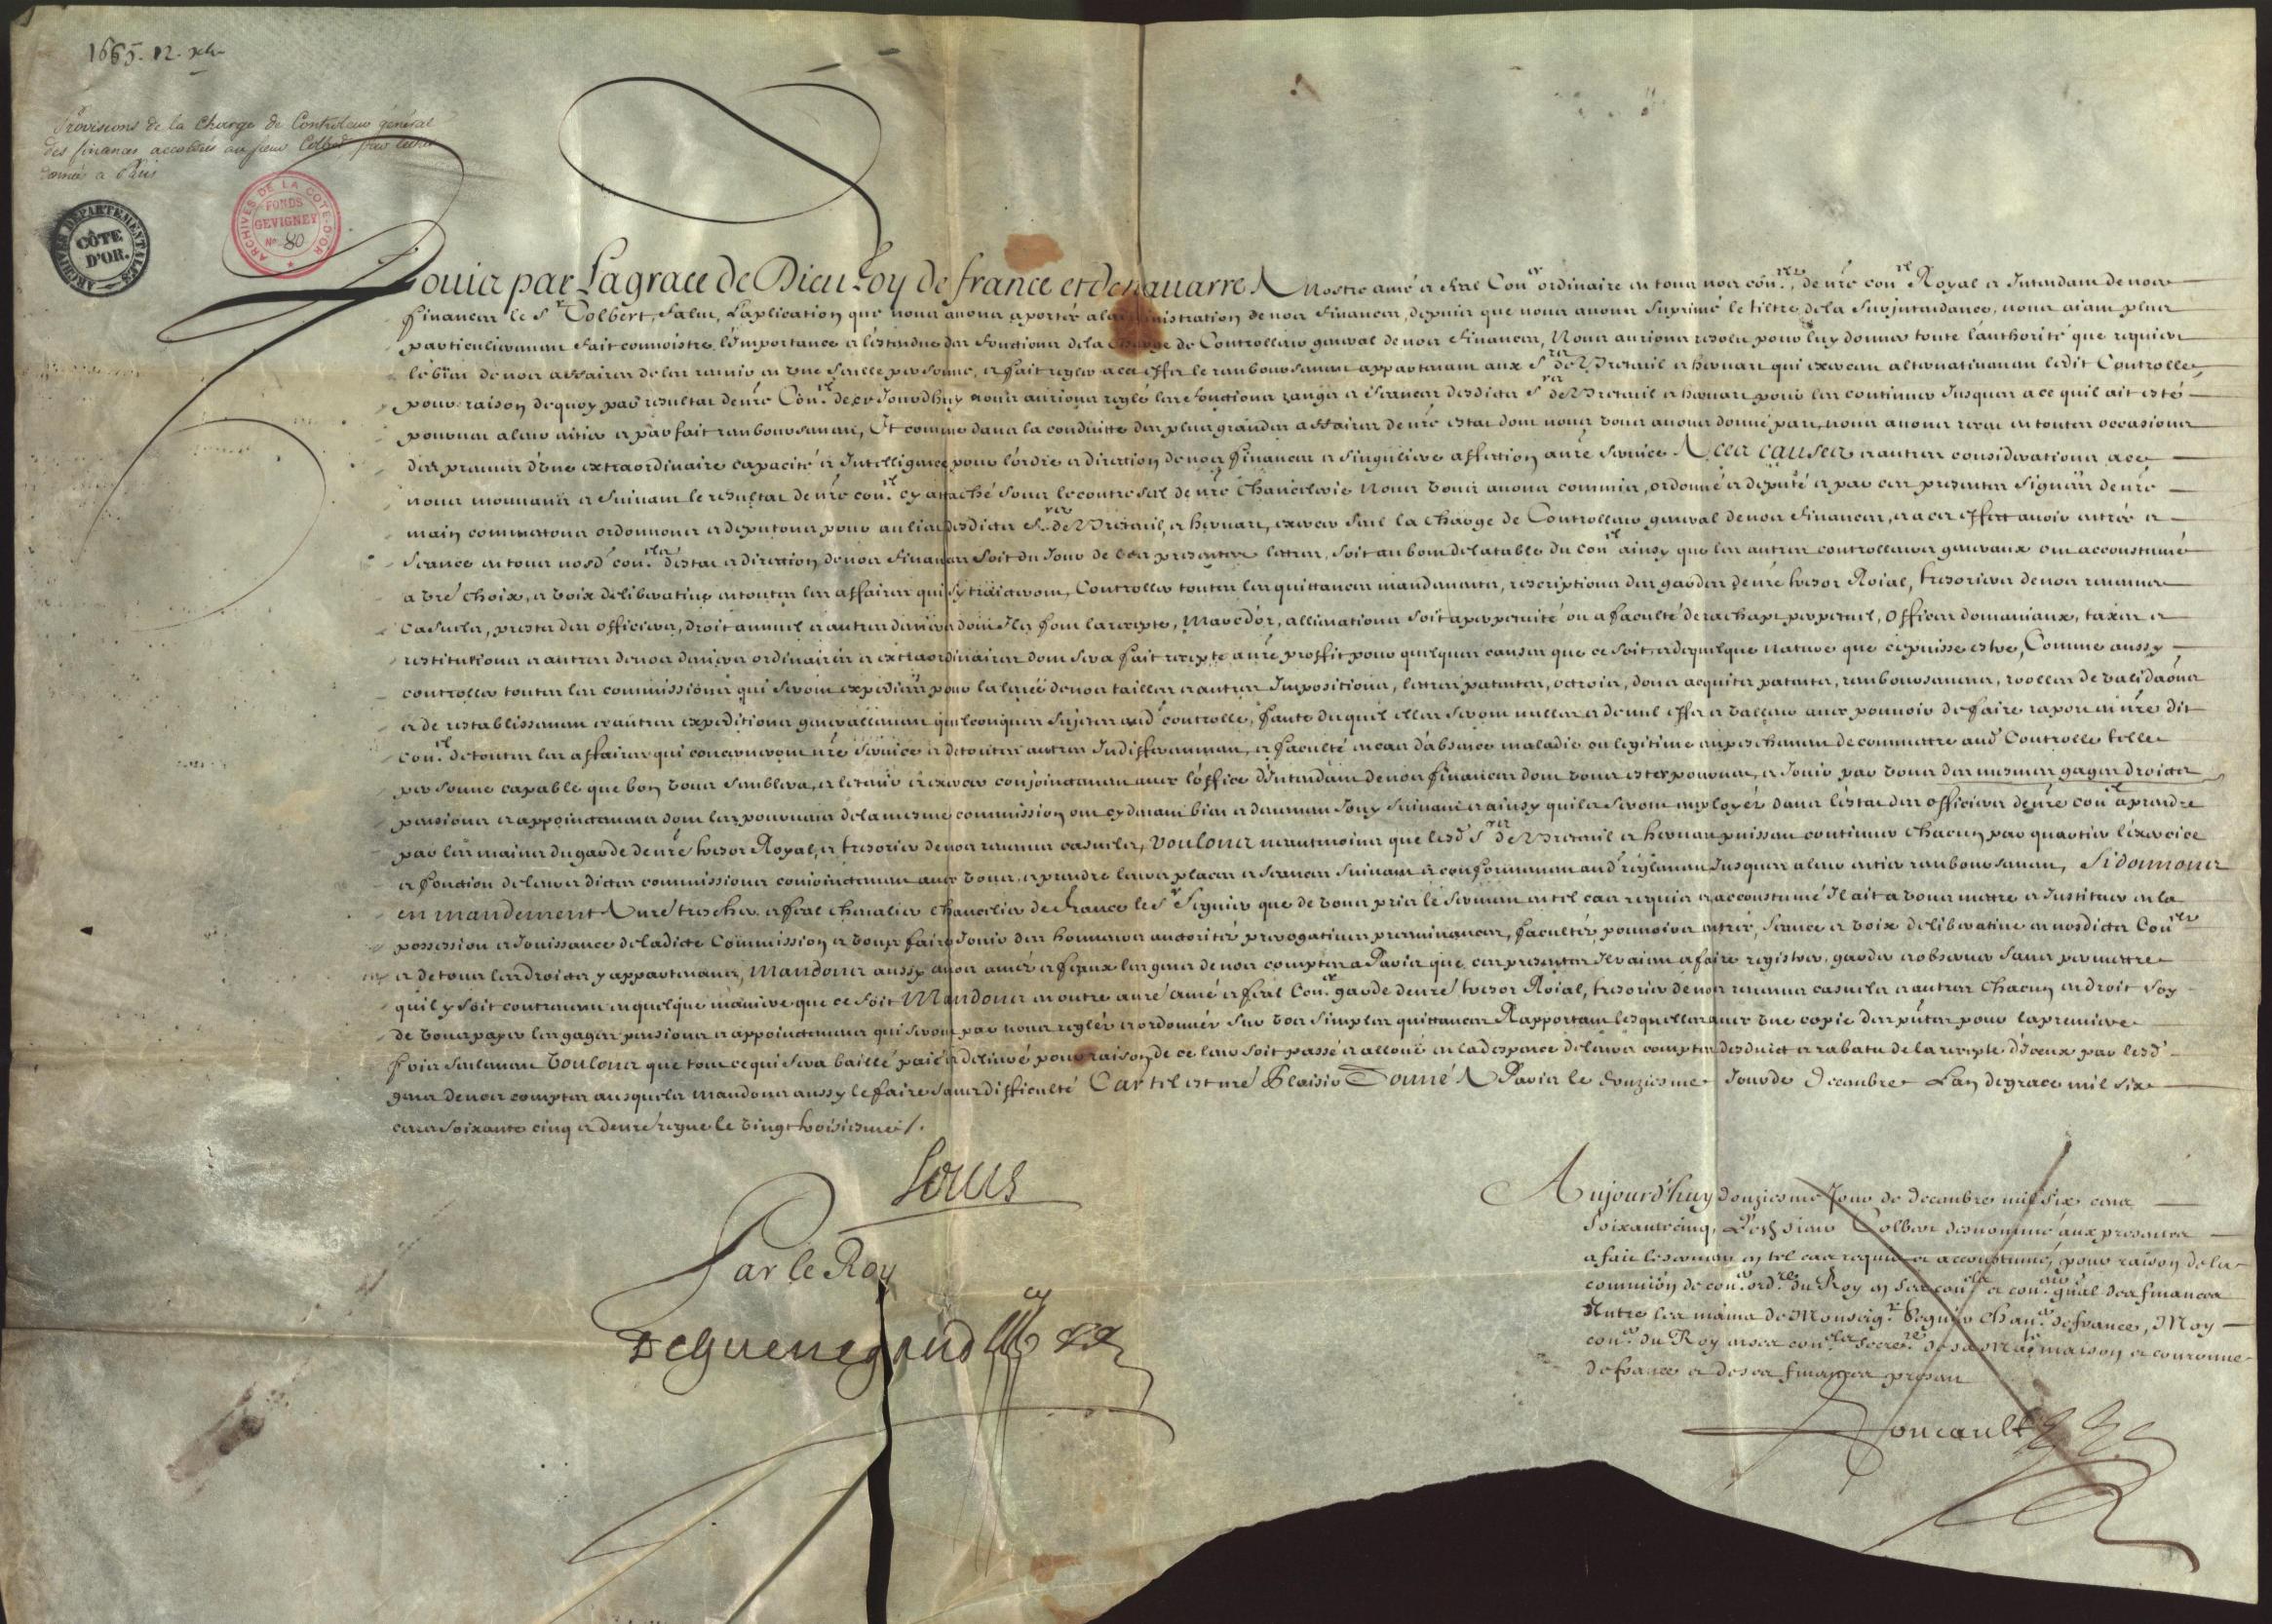 1665. 12. xbre
Provisions de la Charge de Controleur général
des finances accordées au sieur Colbert par lettres
données a Paris
ARCHIVES DEPARTEMENTALES
CÔTE
D'OR.
ARCHIVES DE LA COTE-D'OR
FONDS
GEVIGNEY
No. 80
Louis par La grace de Dieu Roy de france et de nauarre A nostre amé et feal Coner ordinaire en tous nos conlz, de nre conel Royal et Intendant de nos
finances le Sr Colbert, salut, L'aplication que nous auons aportée a l'administration de nos finances, depuis que nous auons suprimé le tiltre de la surjntendance, nous aiant plus
particulierement fait connoistre l'importance et l'estendue des fonctions de la Charge de Controlleur general de nos finances, Nous aurions resolu pour luy donner toute l'authorité que requiert
le bien de nos affaires de les reunir en une seulle personne, et fait regler a cet effet le remboursement appartenant aux Srs de Breteuil et heruart qui exercent alternatiuement ledit Controlle,
pour raison dequoy par resultat de nre Conel de ce Jourdhuy nous aurions reglé les fonctions rangs et seances desdicts Srs de Breteuil et heruart pour les continuer Jusques a ce quil ait esté
pourueu a leur entier et parfait remboursement, Et comme dans la conduitte des plus grandes affaires de nre estat dont nous vous auons donné part, nous auons receu en toutes occasions
des preuues d'une extraordinaire capacité et Intelligence pour l'ordre et direction de nos finances et singuliere affection a nre seruice A ces causes et autres considerations a ce
nous mouuans et suiuant le resultat de nre conel cy attaché sous le contrescel de nre Chancelerie Nous vous auons commis, ordonné et deputé et par ces presentes signées de nre
main commettons ordonnons et deputons pour au lieu desdicts Srs de Breteuil, et heruart, exercer seul la Charge de Controlleur general de nos finances, et a cet effect auoir entrée et
seance en tous nosd conelz d'estat et direction de nos finances soit du Jour de vos presentes lettres, soit au bout de la table du conel ainsy que les autres controlleurs generaux ont accoustumé
a vre choix, et voix deliberatiue en toutes les affaires qui s'y traicteront, Controller toutes les quittances mandements, rescriptions des gardes de nre tresor Roial, tresoriers de nos reuenus
casuels, prests des officiers, droit annuel et autres deniers dont Ils font la recepte, Marc d'or, allienations soit a perpetuité ou a faculté de rachapt perpetuel, Offices domaniaux, taxes et
restitutions et autres de nos deniers ordinaires et extraordinaires dont sera fait recepte a nre proffit pour quelques causes que ce soit et de quelque nature que ce puisse estre, Comme aussy
controller toutes les commissions qui seront expediées pour la leuée de nos tailles et autres Impositions, lettres patentes, octrois, dons acquits patents, remboursements, roolles de validaons
et de restablissement et autres expeditions generallement quelconques sujetes aud controlle, faute duquel elles seront nulles et de nul effet et valleur auec pouuoir de faire raport en nre dit
conel de toutes les affaires qui concerneront nre seruice et de toutes autres Indifferemment, et faculté en cas d'absence maladie ou legitime empeschement de commettre aud Controlle telle
personne capable que bon vous semblera, et le tenir et exercer conjoinctement auec l'office d'Intendant de nos finances dont vous estes pourueu, et Jouir par vous des mesmes gages droicts
pensions et appointements dont les pourueus de la mesme commission ont cy deuant bien et deuement Jouy suiuant et ainsy quils seront employez dans l'estat des officiers de nre conel a prendre
par les mains du garde de nre tresor Royal, et tresorier de nos reuenus casuels, Voulons neantmoins que lesd Srs de Breteuil et heruart puissent continuer Chacun par quartier l'exercice
et fonction de leurs dictes commissions conjoinctement auec vous, et prendre leurs places et seances suiuant et conformement aud reglement Jusques a leur entier remboursement, Si donnons
en mandement A nre trescher et feal cheualier Chancelier de France le Sr Seguier que de vous pris le serment en tel cas requis et accoustumé Il ait a vous mettre et Instituer en la
possession et Jouissance de ladicte Commission et vous faire Jouir des honneurs auctoritez prerogatiues preeminences, facultez, pouuoirs entrée, seance et voix deliberatiue en nosdicts Conelz
et de tous les droicts y appartenants, Mandons aussy a nos amez et feaux les gens de nos comptes a Paris que ces presentes Ils aient a faire registrer, garder et obseruer sans permettre
quil y soit contreuenu en quelque maniere que ce soit Mandons en outre a nre amé et feal Coner garde de nre tresor Roial, tresorier de nos reuenus casuels et autres Chacun en droit soy
de vous payer les gages pensions et appoinctements qui seront par nous reglez et ordonnez sur vos simples quittances Rapportant lesquelles auec vne copie des pntes pour la premiere
fois seulement Voulons que tout ce qui sera baillé paié et deliuré pour raison de ce leur soit passé et alloué en la despence de leurs comptes desduict et rabatu de la recepte d'iceux par lesd
gens de nos comptes ausquels mandons aussy le faire sans difficulté Car tel est nré Plaisir Donné A Paris le douziesme Jour de Decembre L'an de grace mil six
cens soixante cinq et de nré regne le vingt troisiesme /.
Louis
Par le Roy
De Guenegaud
Aujourd'huy douziesme Jour de decembre mil six cens
soixante cinq, Led sieur Colbert desnommé aux presentes
a fait le serment en tel cas requis et accoustumé, pour raison de la
commiōn de coner ordre du Roy en ses conlz et coneur gnal des finances
Entre les mains de Monseigr Seguier Chaner de france, Moy
coner du Roy en ses conlz secre de sa Maté maison et couronne
de france et de ses finances present
Foucault